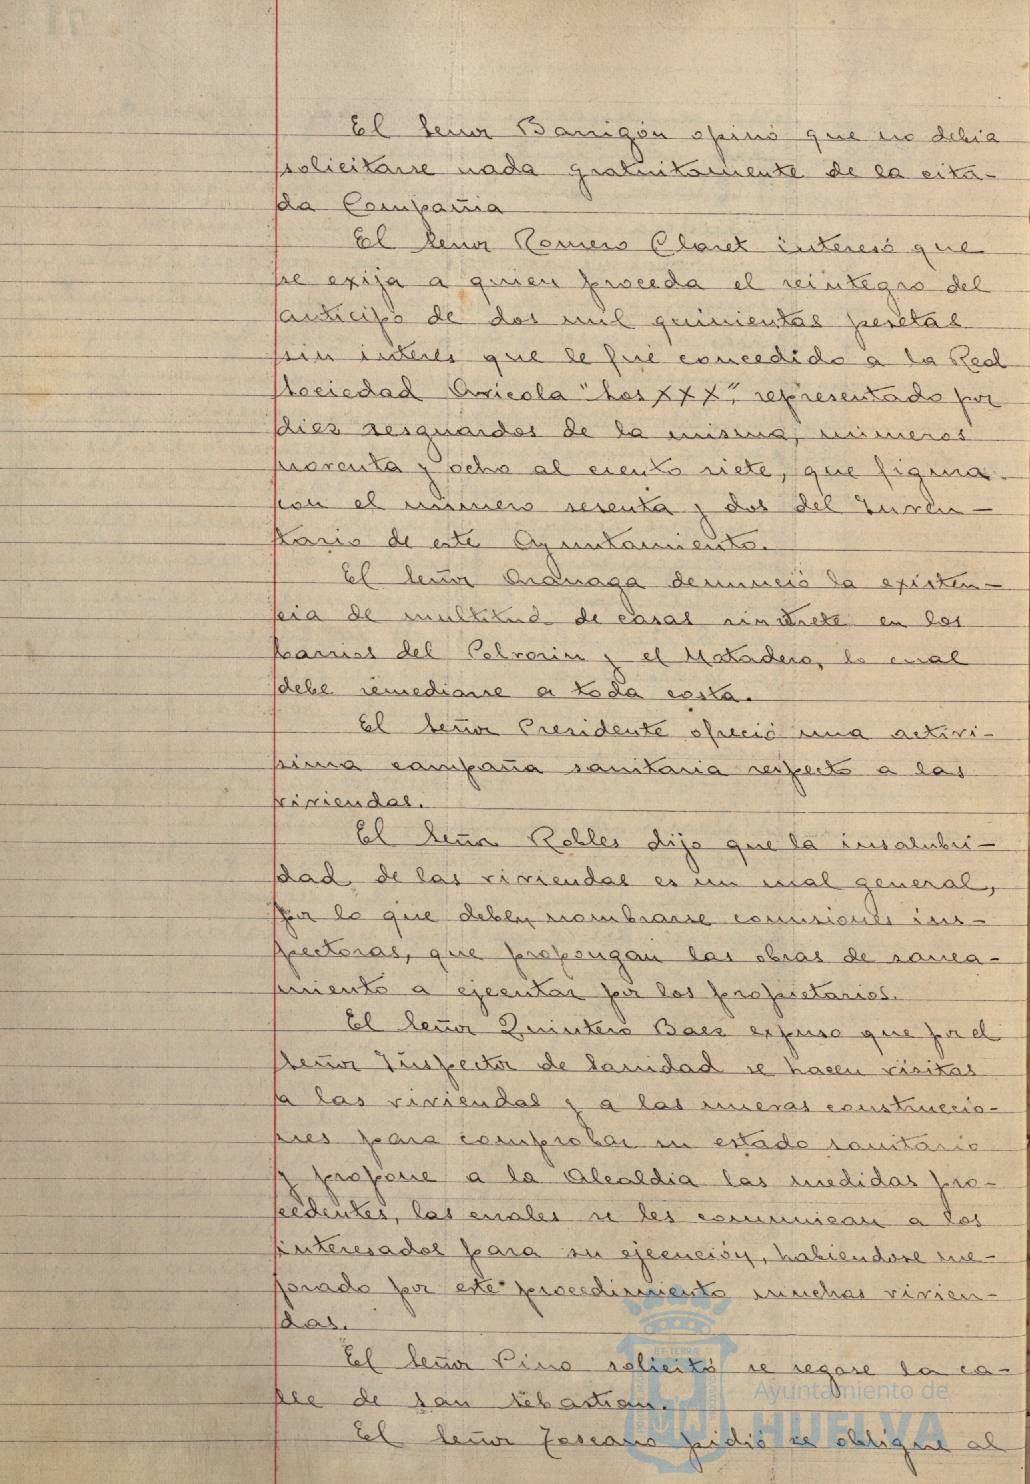 El Señor Barrigón opinó que no debia
solicitarse nada gratuitamente de la cita-
da Compañia
El Señor Romero Claret interesó que
se exija a quien proceda el reintegro del
anticipo de dos mil quinientas pesetas
sin interes que le fué concedido a la Real
Sociedad Avicola "Los XXX", representado por
diez resguardos de la misma, numeros
noventa y ocho al ciento siete, que figura
con el numero sesenta y dos del Inven-
tario de este Ayuntamiento.
El Señor denunció la existen-
cia de multitud de casas sin en los
barrios del Polvorin y el Matadero, lo cual
debe remediarse a toda costa.
El Señor Presidente ofreció una activi-
sima campaña sanitaria respecto a las
viviendas.
El Señor Robles dijo que la insalubri-
dad de las viviendas es un mal general,
por lo que deben nombrarse comisiones ins-
pectoras, que propongan las obras de sanea-
miento a ejecutar por los propietarios.
El Señor Quintero Baez expuso que por el
Señor Inspector de Sanidad se hacen visitas
a las viviendas y a las nuevas construccio-
nes para comprobar su estado sanitario
y propone a la Alcaldia las medidas pro-
cedentes, las cuales se les comunican a los
interesados para su ejecución, habiendose me-
jorado por este procedimiento muchas vivien-
das.
El Señor Pino solicitó se regase la ca-
lle de San Sebastian.
El Señor Toscano pidió se obligue al
Ayuntamiento de
HUELVA